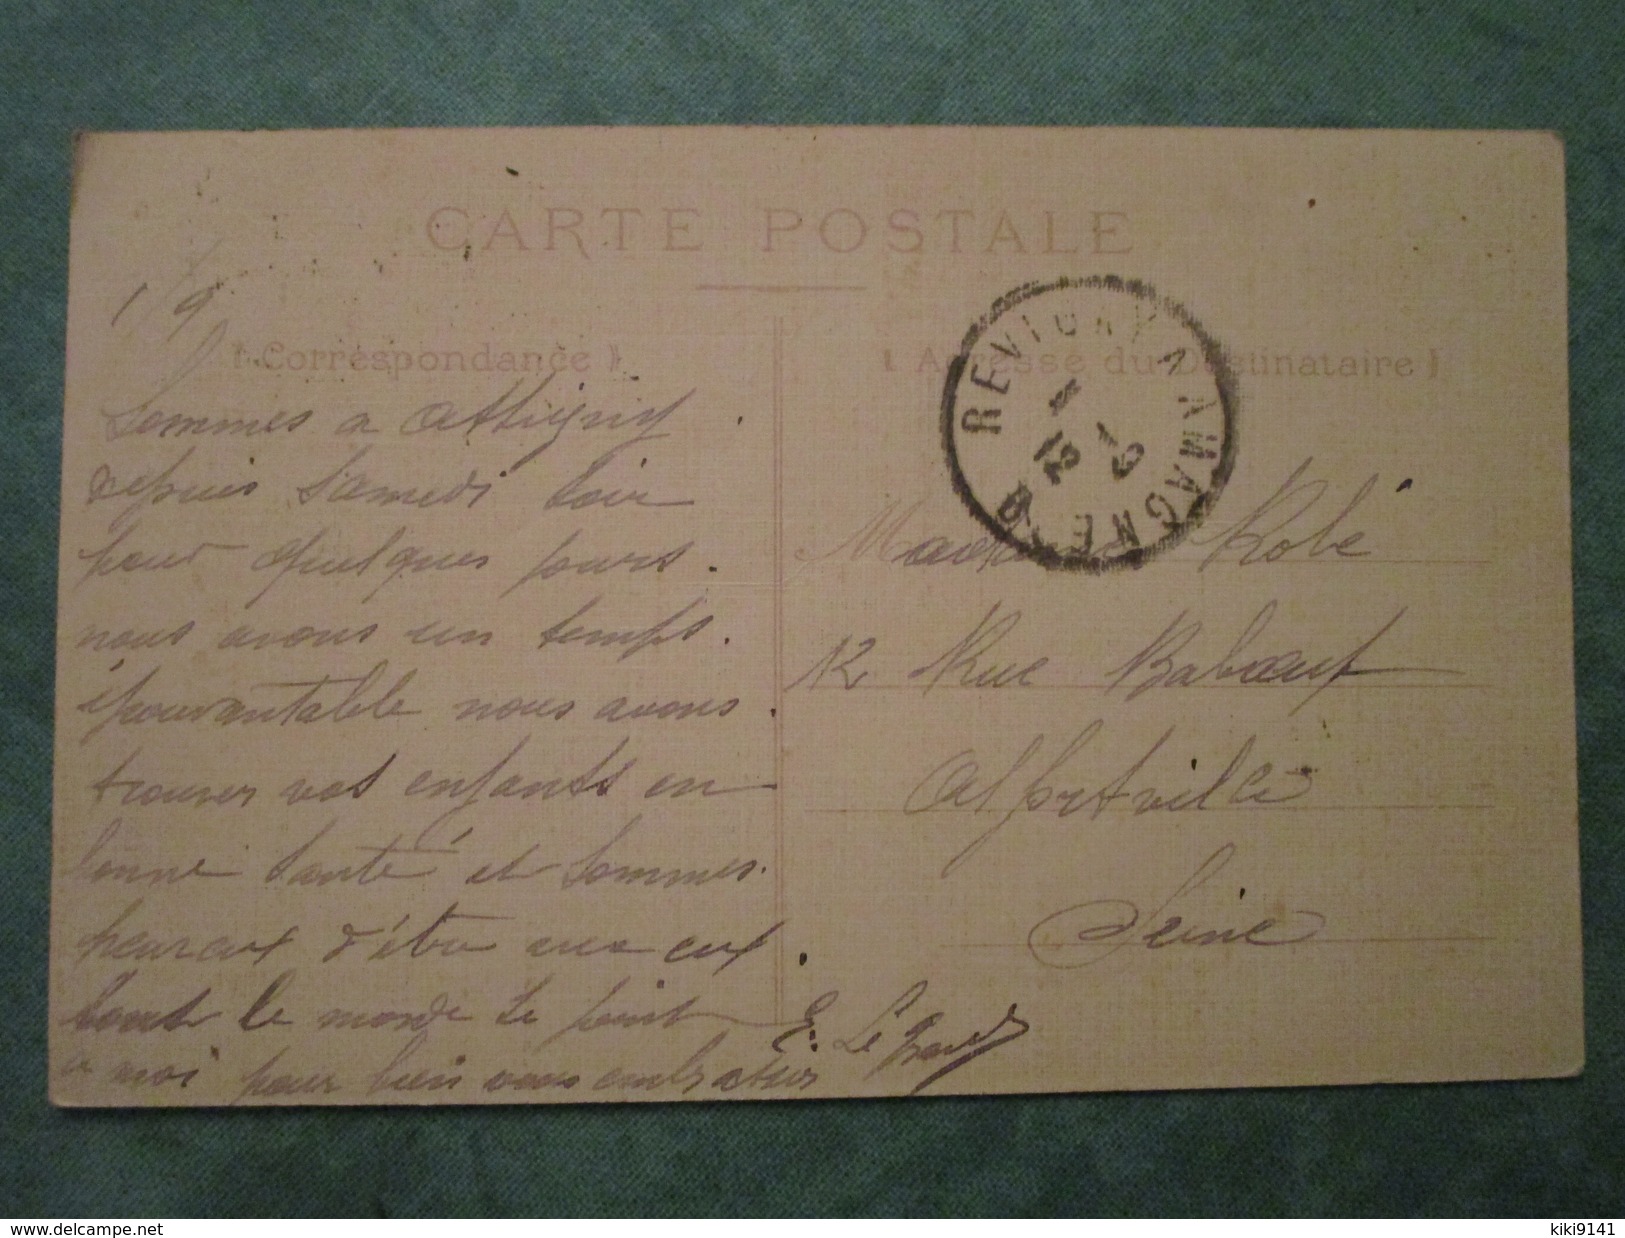 CARTE POSTALE
1 9
Correspondance
Adresse du Destinataire
REVIGNY A AMAGNE
Sommes a Attigny
depuis Samedi soir
pour quelques jours.
nous avons un temps.
épouvantable nous avons.
trouver vos enfants en
bonne Santé et Sommes.
heureux d'être avec eux.
tout le monde se joint
a moi pour bien vous embrasser
E. Legrand
Madame Robé
12 Rue Babœuf
Alfortville
Seine
www.delcampe.net
kiki9141